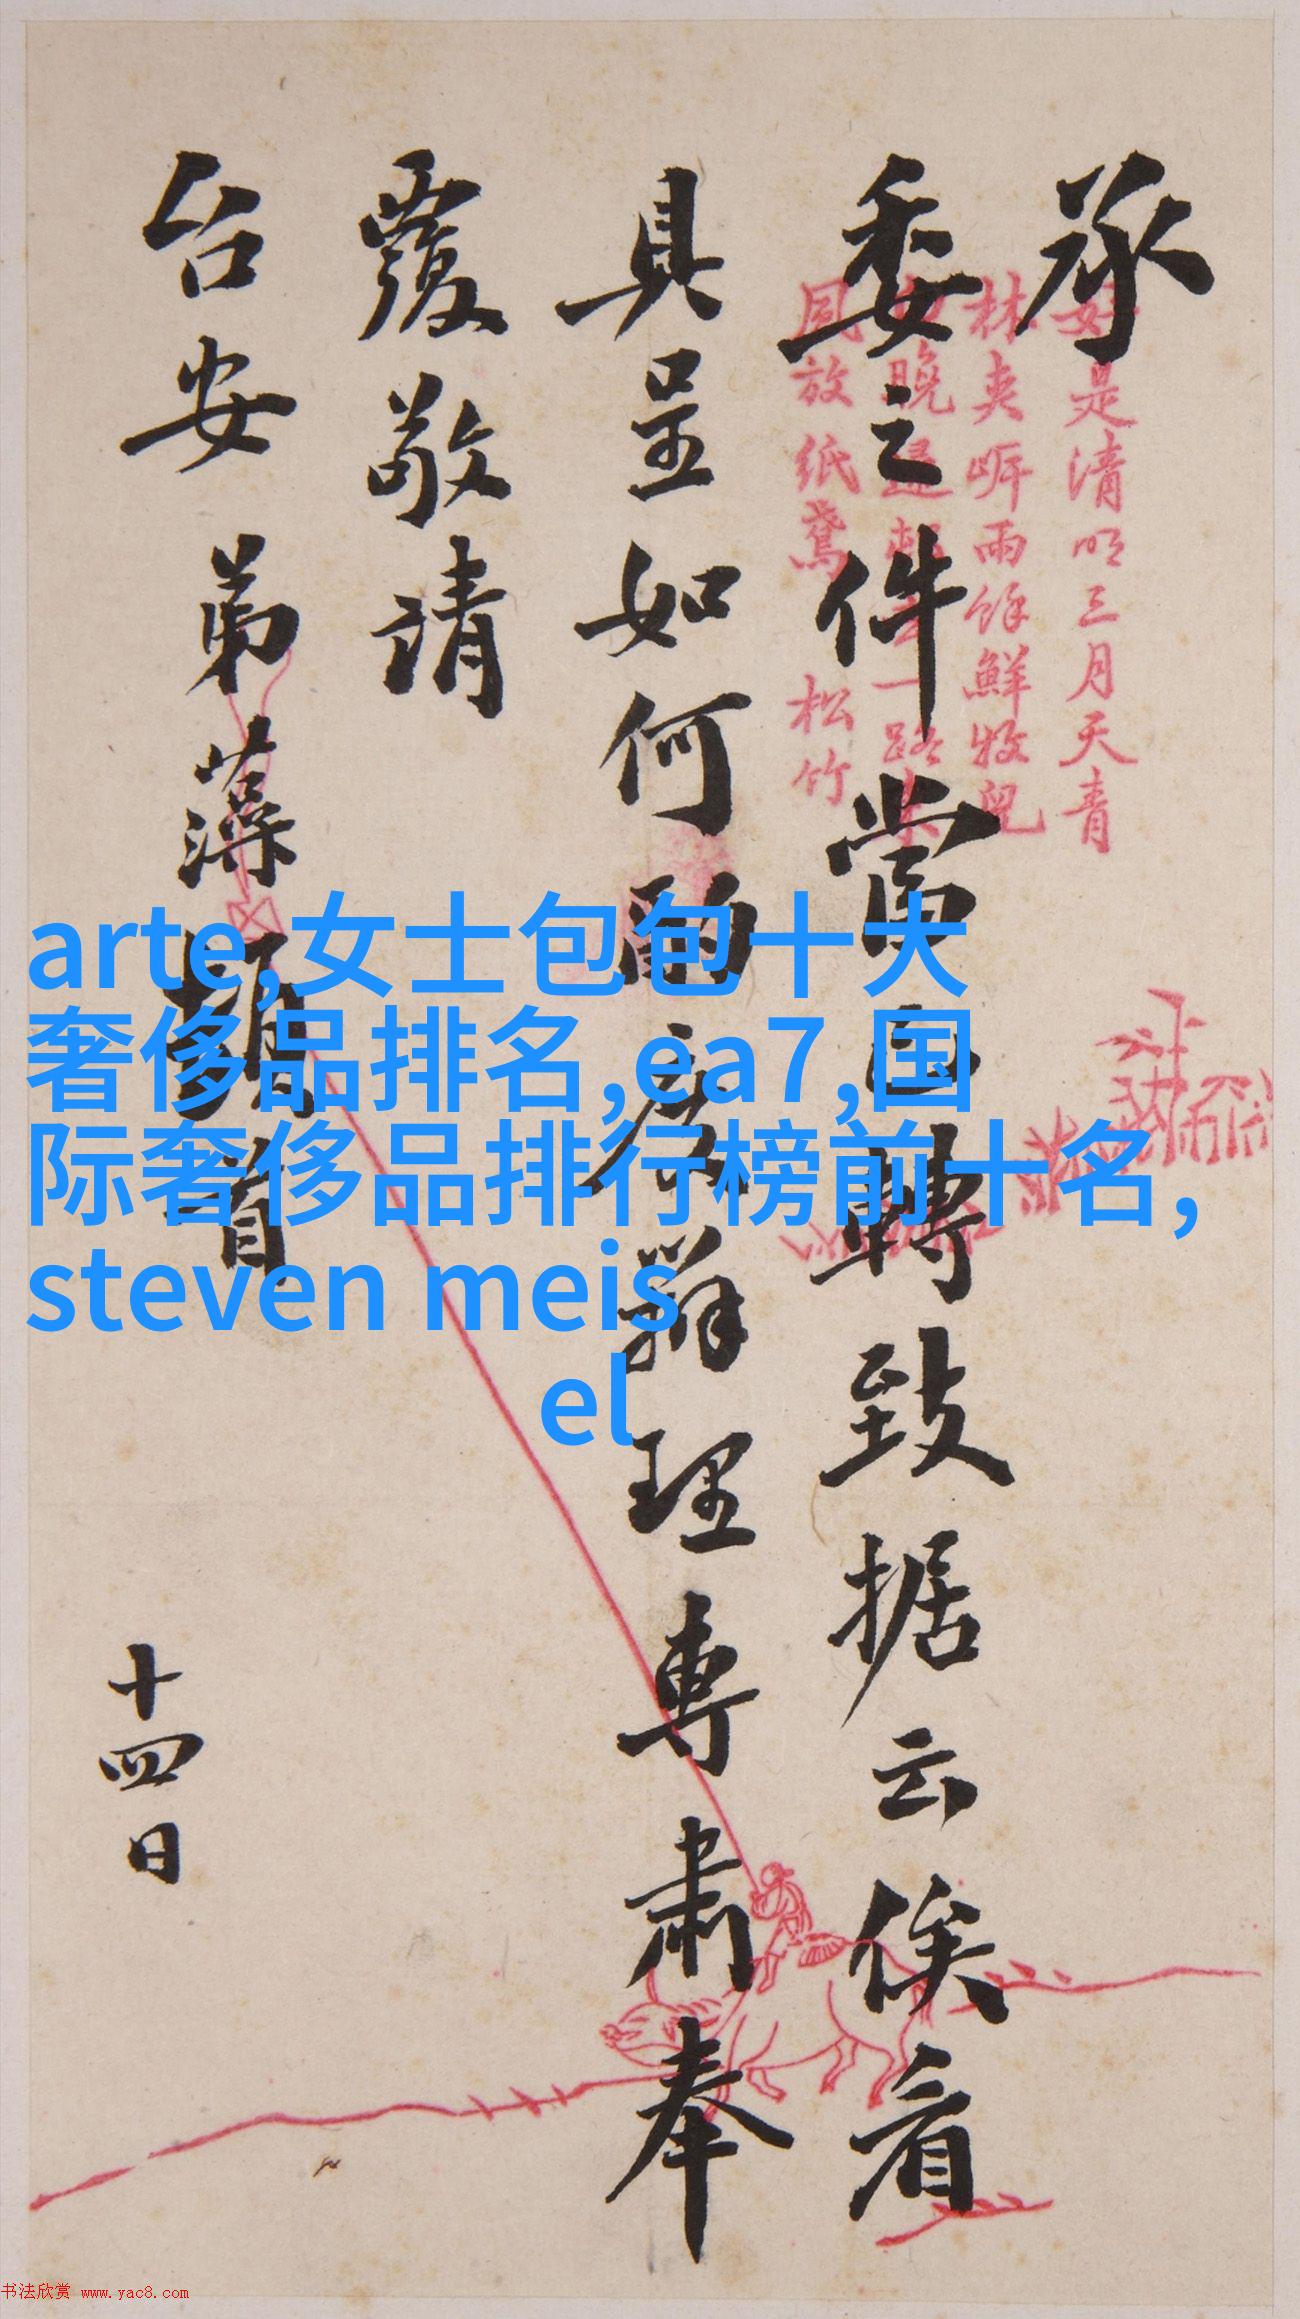 承
委之件當即轉致据云俟看
具呈如何酌度辦理專肅奉
覆敬請
台安 弟藻翔頓首
十四日
好是清明三月天青
林夾岸雨餘鮮牧兒
晚歸
同放紙鳶 松竹
arte,女士包包十大
奢侈品排名,ea7,国
际奢侈品排行榜前十名,
steven meis
el
书法欣赏 www.yac8.com